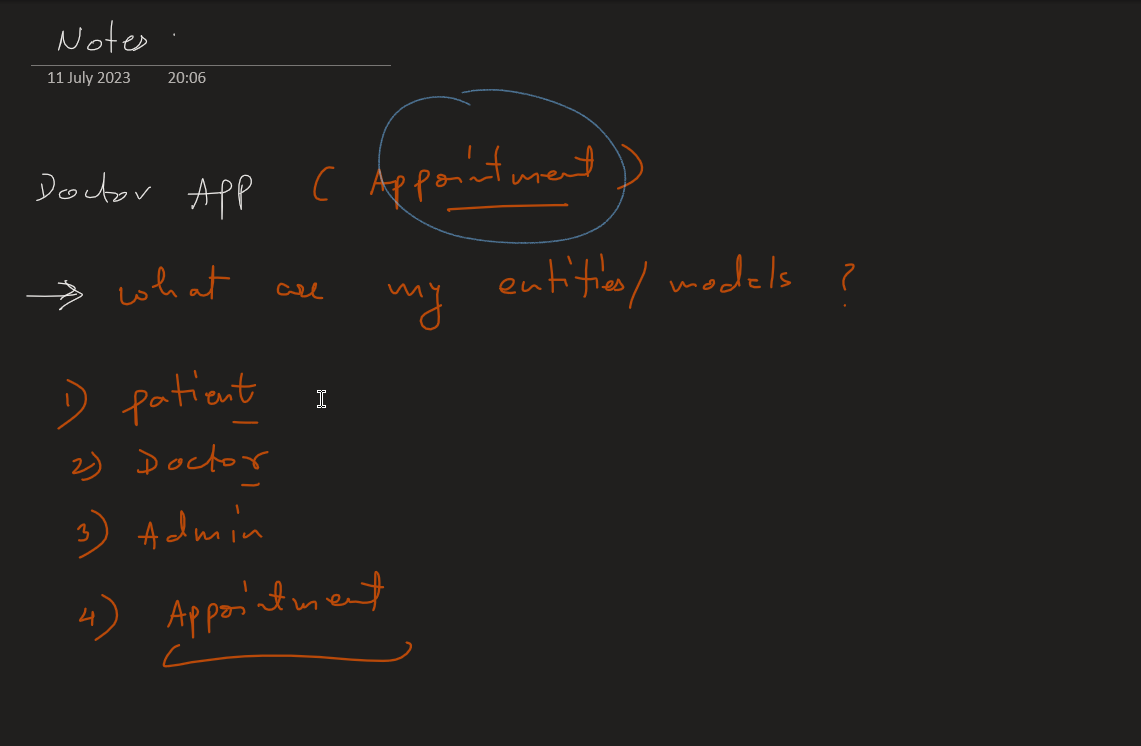 Notes
11 July 2023 20:06
Doctor APP ( Appointment )
→ what are my entities/models ?
1) patient
2) Doctor
3) Admin
4) Appointment